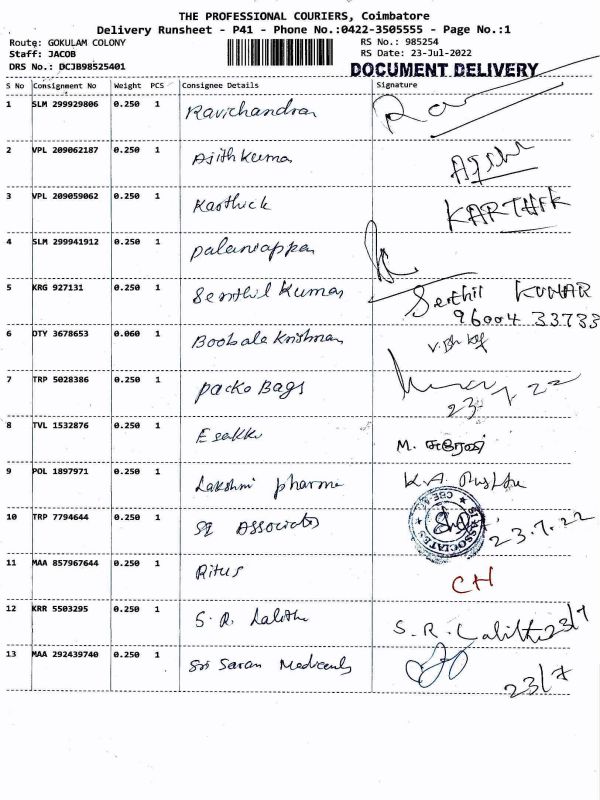 THE PROFESSIONAL COURIERS, Coimbatore
Delivery Runsheet - P41 - Phone No.:0422-3505555 - Page No.:1
Route: GOKULAM COLONY RS No.: 985254
Staff: JACOB RS Date: 23-Jul-2022
DRS No.: DCJB98525401 DOCUMENT DELIVERY
S No Consignment No Weight PCS Consignee Details Signature
1 SLM 299929806 0.250 1 Ravichandran
2 VPL 209062187 0.250 1 Ajith Kumar
3 VPL 209059062 0.250 1 Karthick KARTHIK
4 SLM 299941912 0.250 1 palaniappan
5 KRG 927131 0.250 1 Senthil Kumar Senthil KUMAR
96004 33733
6 DTY 3678653 0.060 1 Boobala Krishnan
7 TRP 5028386 0.250 1 packo Bags
23 - 7 - 22
8 TVL 1532876 0.250 1 Esakki M.
9 POL 1897971 0.250 1 Lakshmi pharma K.A.
10 TRP 7794644 0.250 1 Associates ASSOCIATES 23.7.22
11 MAA 857967644 0.250 1 Ritus CH
12 KRR 5503295 0.250 1 S. R. Lalitha S. R. Lalitha 23/7
13 MAA 292439740 0.250 1 Sri Saran Medicals 23/7